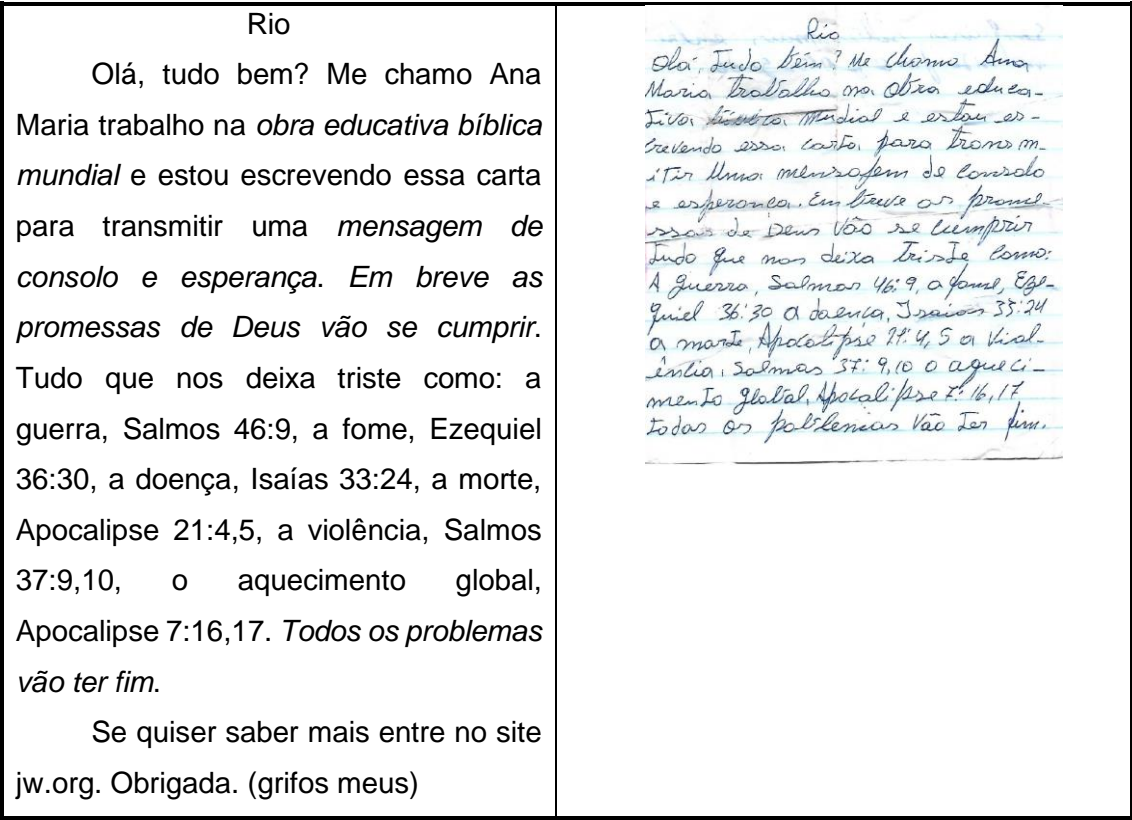 Rio
Olá, tudo bem? Me chamo Ana
Maria trabalho na obra educativa bíblica
mundial e estou escrevendo essa carta
para transmitir uma mensagem de
consolo e esperança. Em breve as
promessas de Deus vão se cumprir.
Tudo que nos deixa triste como: a
guerra, Salmos 46:9, a fome, Ezequiel
36:30, a doença, Isaías 33:24, a morte,
Apocalipse 21:4,5, a violência, Salmos
37:9,10, o aquecimento global,
Apocalipse 7:16,17. Todos os problemas
vão ter fim.
Se quiser saber mais entre no site
jw.org. Obrigada. (grifos meus)
Rio
Olá, Tudo bem? Me chamo Ana
Maria trabalho na obra educa-
tiva mudial e estou es-
crevendo essa carta para transm-
itir Uma mensagem de consolo
e esperança. Em breve as prome-
ssas de Deus vão se cumprir
Tudo que nos deixa Triste como:
A guerra, Salmos 46:9, a fome, Eze-
quiel 36:30 a doença, Isaias 33:24
a morte, Apocalipse 21:4,5 a viol-
ência, Salmos 37:9,10 o aqueci-
mento global, Apocalipse 7:16,17
todos os vão ter fim.